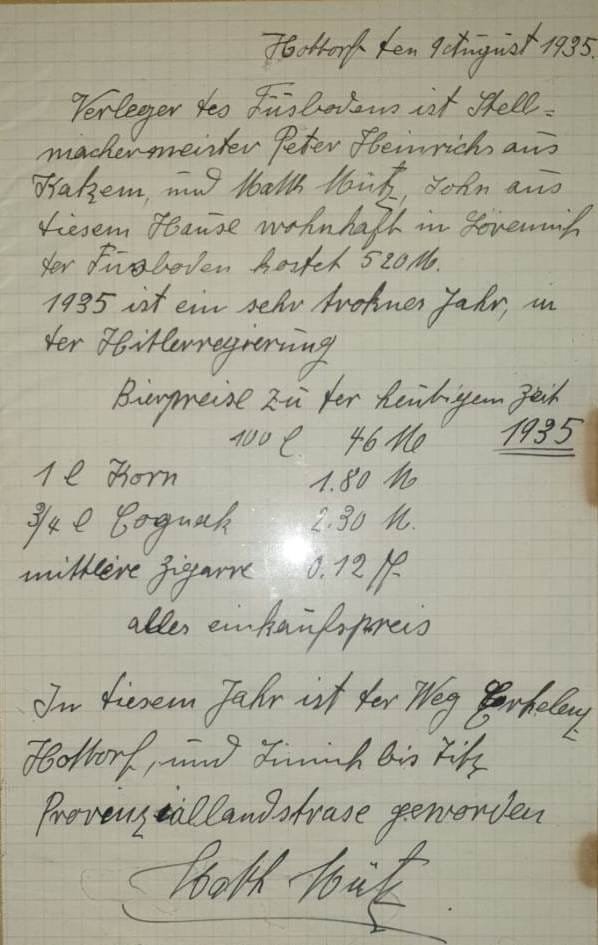 Hottorf den 9 August 1935.
Verleger des Fusbodens ist Stell=
machermeister Peter Heinrichs aus
Katzem, und Math Mütz, Sohn aus
diesem Hause wohnhaft in Lövenich
der Fusboden kostet 520 M.
1935 ist ein sehr troknes Jahr, in
der Hitlerregierung
Bierpreise zu der heutigem Zeit
100 l 46 M 1935
1 l Korn 1.80 M
3/4 l Cognak 2.30 M.
mittlere Zigarre 0.12 Pf.
alles einkaufspreis
In diesem Jahr ist der Weg Erkelenz
Hottorf, und Linnich bis Titz
Provinziallandstrase geworden
Math Mütz